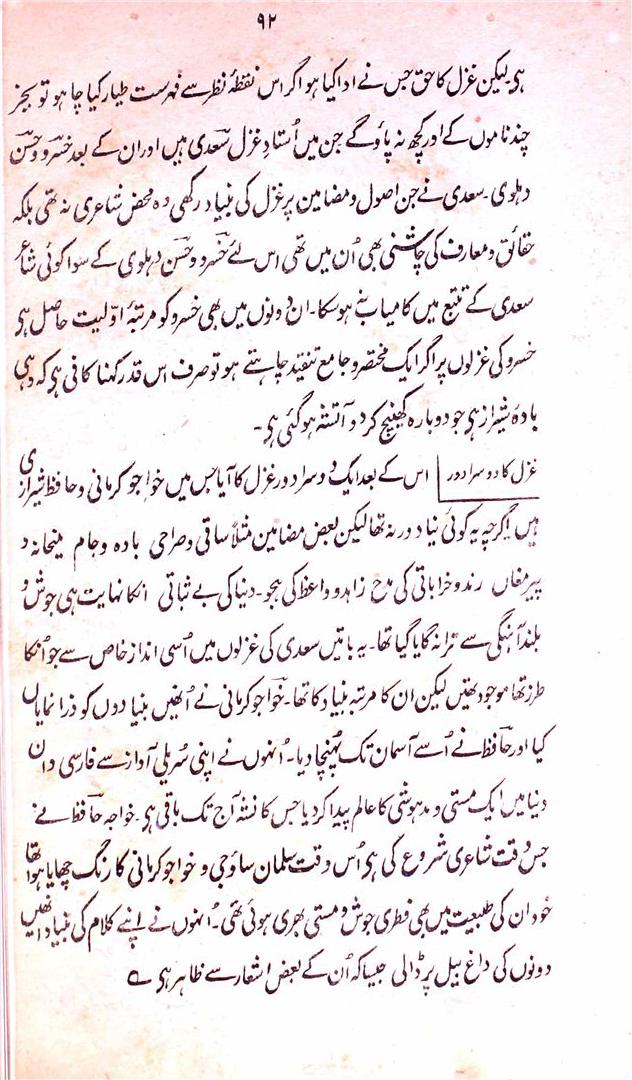 ۹۲
ہی۔ لیکن غزل کا حق جس نے ادا کیا ہو اگر اس نقطۂ نظر سے فہرست طیار کیا چاہو تو بجز
چند ناموں کے اور کچھ نہ پاؤ گے جن میں اُستادِ غزل سعدی ہیں اور ان کے بعد خسرو و حسن
دہلوی۔ سعدی نے جن اصول و مضامین پر غزل کی بنیاد رکھی وہ محض شاعری نہ تھی بلکہ
حقائق و معارف کی چاشنی بھی اُن میں تھی اس لئے خسرو و حسن دہلوی کے سوا کوئی شاعر
سعدی کے تتبع میں کامیاب نہ ہو سکا۔ ان دونوں میں بھی خسرو کو مرتبۂ اوّلیت حاصل ہی
خسرو کی غزلوں پر اگر ایک مختصر و جامع تنقید چاہتے ہو تو صرف اس قدر کہنا کافی ہی کہ وہی
بادۂ شیراز ہی جو دوبارہ کھینچ کر دو آتشہ ہو گئی ہی۔
غزل کا دوسرا دور | اس کے بعد ایک دوسرا دور غزل کا آیا جس میں خواجو کرمانی و حافظ شیرازی
ہیں اگرچہ یہ کوئی نیا دور نہ تھا لیکن بعض مضامین مثلاً ساقی و صراحی بادہ و جام میخانہ و
پیر مغاں رند و خراباتی کی مدح زاہد و واعظ کی ہجو۔ دنیا کی بے ثباتی انکا نہایت ہی جوش و
بلند آہنگی سے ترانہ گایا گیا تھا۔ یہ باتیں سعدی کی غزلوں میں اُسی انداز خاص سے جو اُنکا
طرز تھا موجود تھیں لیکن ان کا مرتبہ بنیاد کا تھا۔ خواجو کرمانی نے اُنھیں بنیادوں کو ذرا نمایاں
کیا اور حافظ نے اُسے آسمان تک پہُنچا دیا۔ اُنہوں نے اپنی سُریلی آواز سے فارسی داں
دنیا میں ایک مستی و مدہوشی کا عالم پیدا کر دیا جس کا نشہ آج تک باقی ہی۔ خواجہ حافظ نے
جس وقت شاعری شروع کی ہی اُس وقت سلمان ساؤجی و خواجو کرمانی کا رنگ چھایا ہوا تھا
خود ان کی طبیعت میں بھی فطری جوش و مستی بھری ہوئی تھی۔ اُنہوں نے اپنے کلام کی بنیاد انھیں
دونوں کی داغ بیل پر ڈالی جیسا کہ اُن کے بعض اشعار سے ظاہر ہی ؎